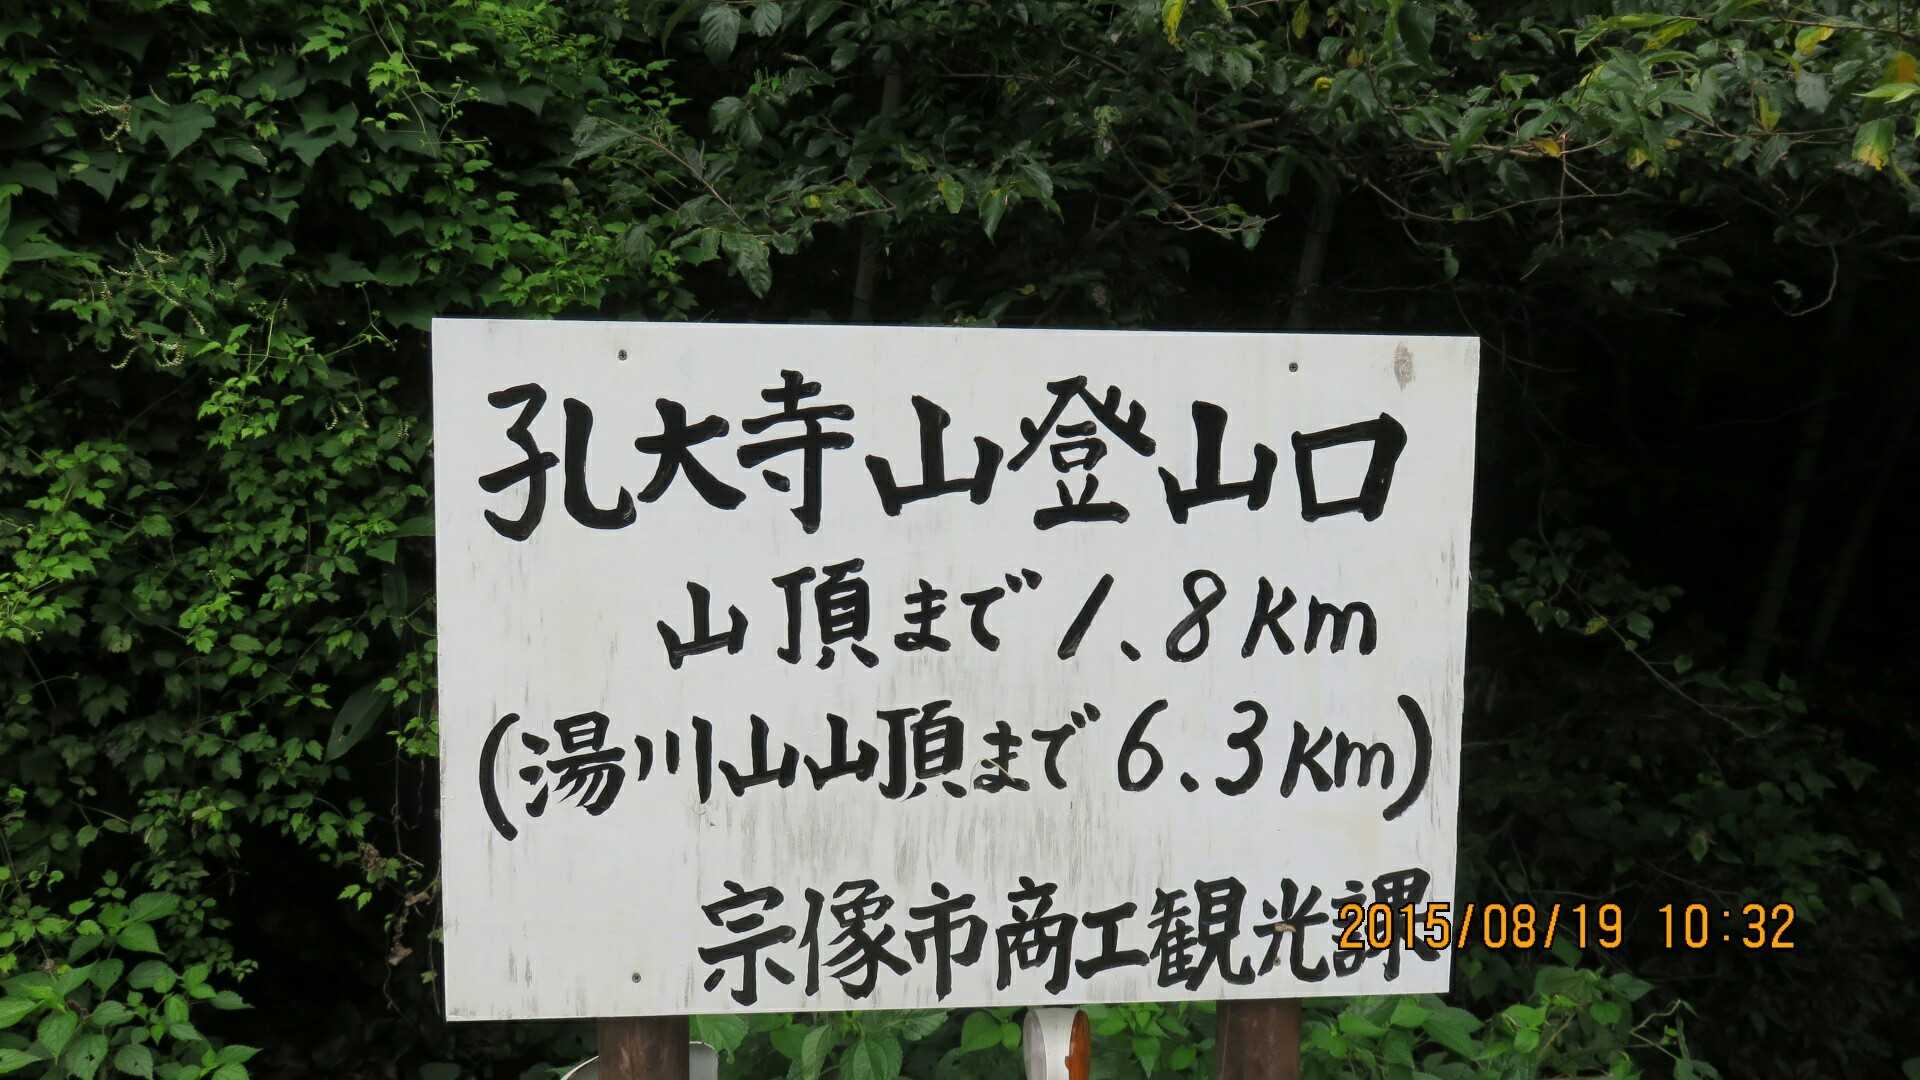 孔大寺山登山口
山頂まで1.8Km
(湯川山山頂まで6.3Km)
宗像市商工観光課
2015/08/19 10:32